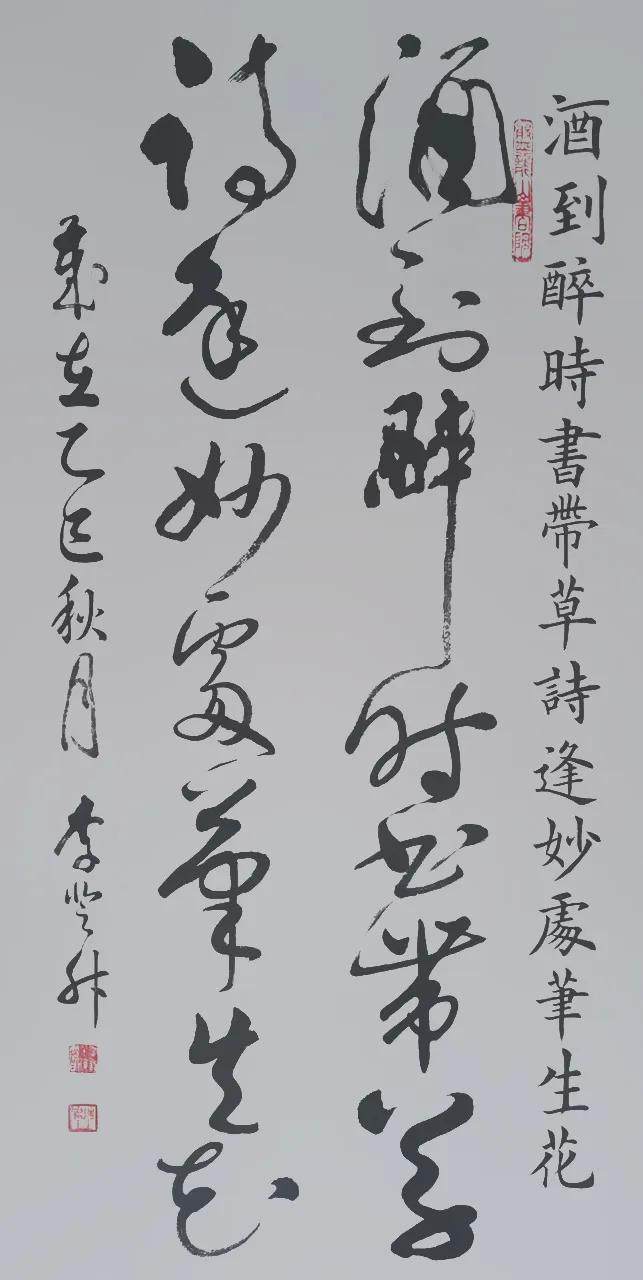 酒到醉時書帶草詩逢妙處筆生花
酒到醉时书带草
詩逢妙處筆生花
歲在乙巳秋月 李登州